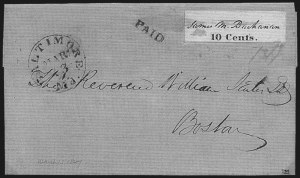 BALTIMORE
MAR
PAID
James M. Buchanan
10 Cents.
The Reverend William
Boston